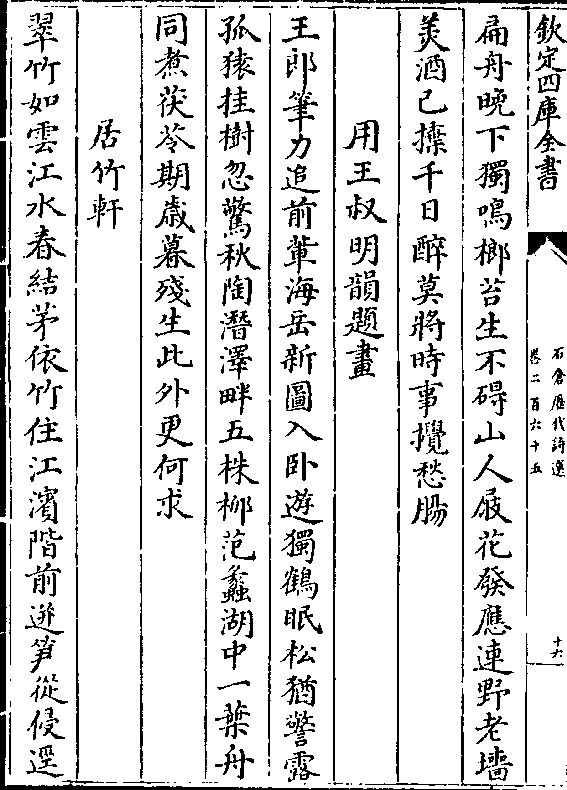 欽定四庫全書
石倉歷代詩選
卷二百六十五
十六
扁舟晚下獨鳴榔苔生不碍山人屐花發應連野老墻
羙酒已擣千日醉莫將時事攪愁腸
用王叔明韻題畫
王郎筆力追前輩海岳新圖入卧遊獨鶴眠松猶警露
孤猿挂樹忽驚秋陶潛澤畔五株栁范蠡湖中一葉舟
同煮茯苓期歲暮殘生此外更何求
居竹軒
翠竹如雲江水春結茅依竹住江濱階前迸笋從侵逕